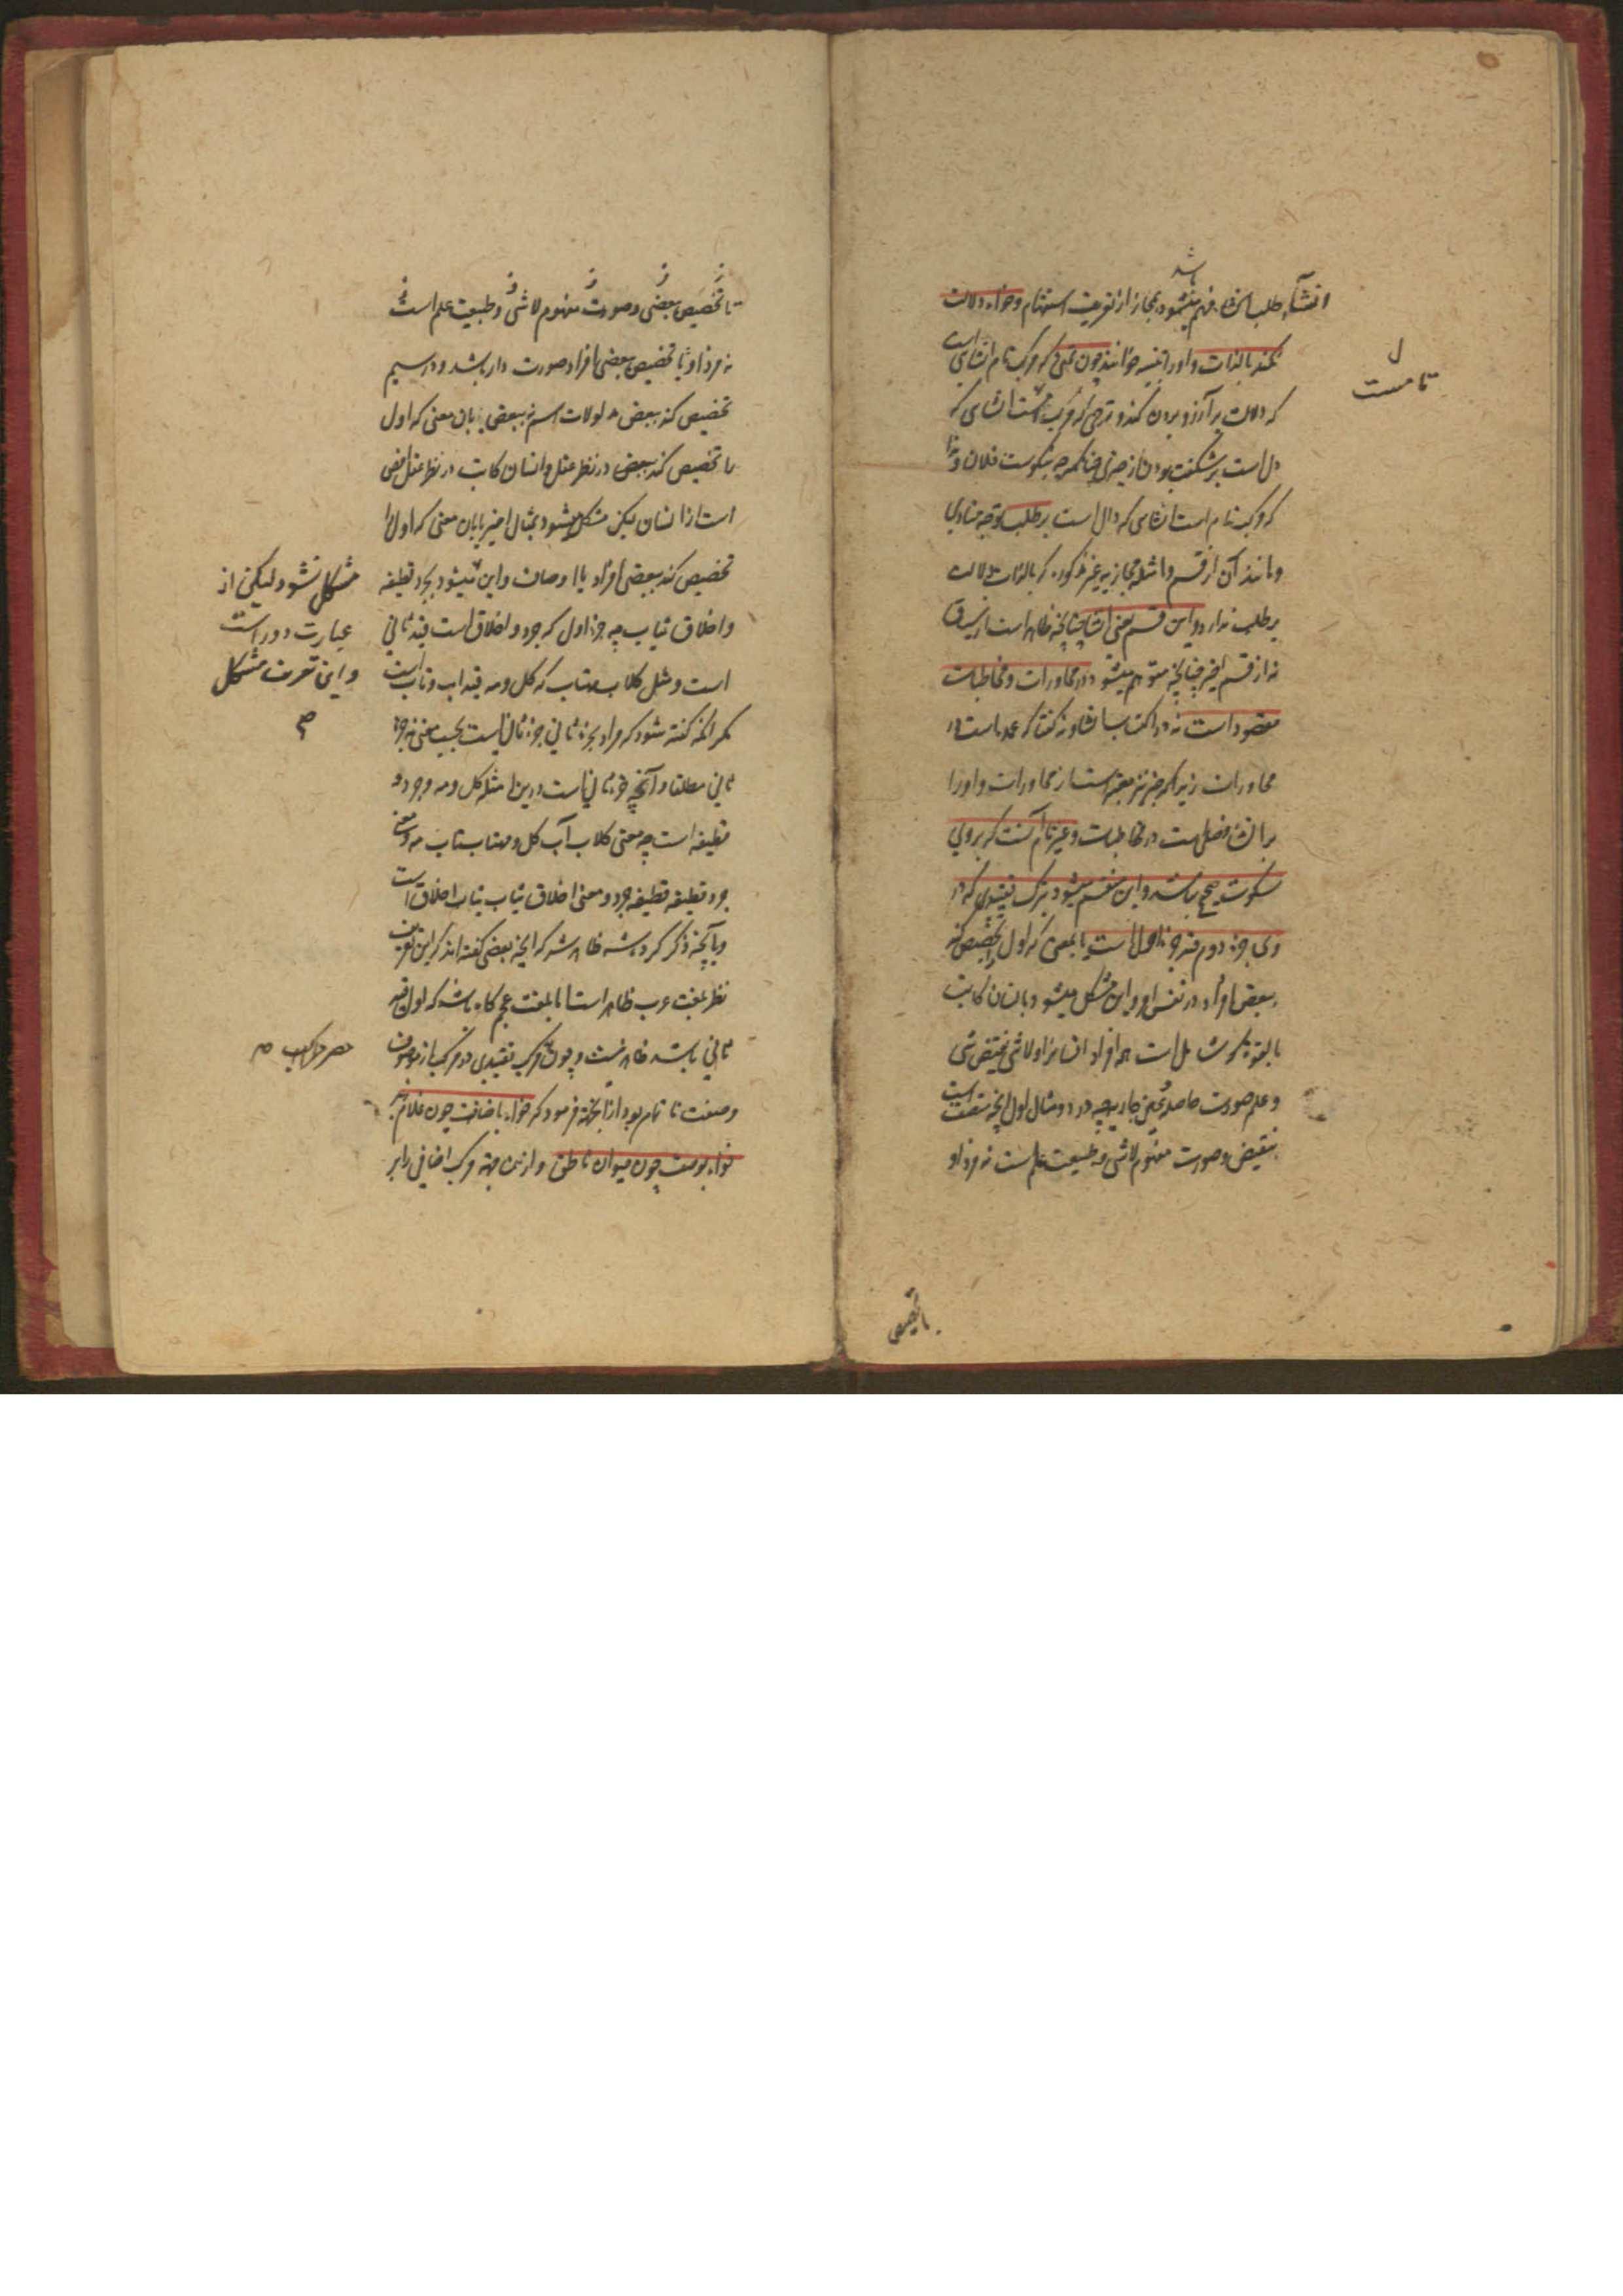 باشد
انشاء طلب از فهم میشود مجاز از تعریف استفهام وخواه دلالت
نکند بالذات و اورا تنبیه خوانند چون تمنی که مرکب تام انشای است
که دلالت بر آرزو بردن کند و ترجی که مرکب انشای که
دال است بر شکفت بودن از چیزی چنانکه چه نیکوست فلان وندا
که مرکب تام است انشای که دال است بر طلب توجه منادی
ومانند آن از قسم وامثله مجازیه غیر مذکوره که بالذات دلالت
بر طلب ندارد و این قسم یعنی انشا چنانچه ظاهر است از سوق
نه از قسم اخیر چنانچه متوهم میشود در محاورات ومخاطبات
مقصود است نه در اکتسابها و نه گفتا که عمده است در
محاورات زیرا که خبر نیز معتبر است از محاورات و اورا
بر انشاء فضلی است در مخاطبات وغیر تام آنست که بر وی
سکوت صحیح نباشد و این منقسم میشود بمرکب تقییدی که در
وی جزء دوم قید جزء اول است بآن معنی که اول را تخصیص کند
ببعض افراد در نفس او و این مشکل میشود بانسان کاتب
بالقوه که شامل است همه افراد انسانرا و لاشی نقیض شی
وعلم صورت حاصله چه در دو مثال اول آنچه متصف است
بنقیض وصورت مفهوم لاشی وطبیعت علم است نه فرد او
ل
تامست
با تخصیص
تا تخصیص بعضی وصورت مفهوم لاشی وطبیعت علم است
نه فرد او یا تخصیص بعضی افراد صورت دار باشد ودر سیم
تخصیص کند ببعض مدلولات اسم نه ببعض بآن معنی که اول
را تخصیص کند ببعض در نظر عقل وانسان کاتب در نظر عقل اخص
است از انسان لیکن مشکل میشود بمثال اخیر یا بآن معنی که اول را
تخصیص کند ببعضی افراد یا اوصاف و این میشود بجرد قطیفه
واخلاق ثیاب چه جزء اول که جرد واخلاق است قید ثانی
است ومثل گلاب مهتاب که گل ومه قید آب وتاب است
مگر آنکه گفته شود که مراد بجزء ثانی جزء ثانی است بحسب معنی نه جزء
ثانی مطلقا و آنچه جزء ثانی است درین امثله گل ومه وجرد و
قطیفه است چه معنی گلاب آب گل ومهتاب تاب مه ومعنی
جرد قطیفه قطیفه جرد ومعنی اخلاق ثیاب ثیاب اخلاق است
وبآنچه ذکر کرده شد ظاهر شد که آنچه بعضی گفته اند که این تعریف
نظر بلغت عرب ظاهر است اما بلغت عجم گاه باشد که اول قید
ثانی باشد ظاهر نیست وچون مرکب تقییدی دو مرکب از موصوف
وصفت نا تمام بود از آنجهة فرمود که خواه باضافت چون غلام زید
خواه بوصف چون حیوان ناطق و ازین جهة مرکب اضافی را بر
مشکل نشود لیکن از
عبارت دور است
واین تعریف مشکل
م